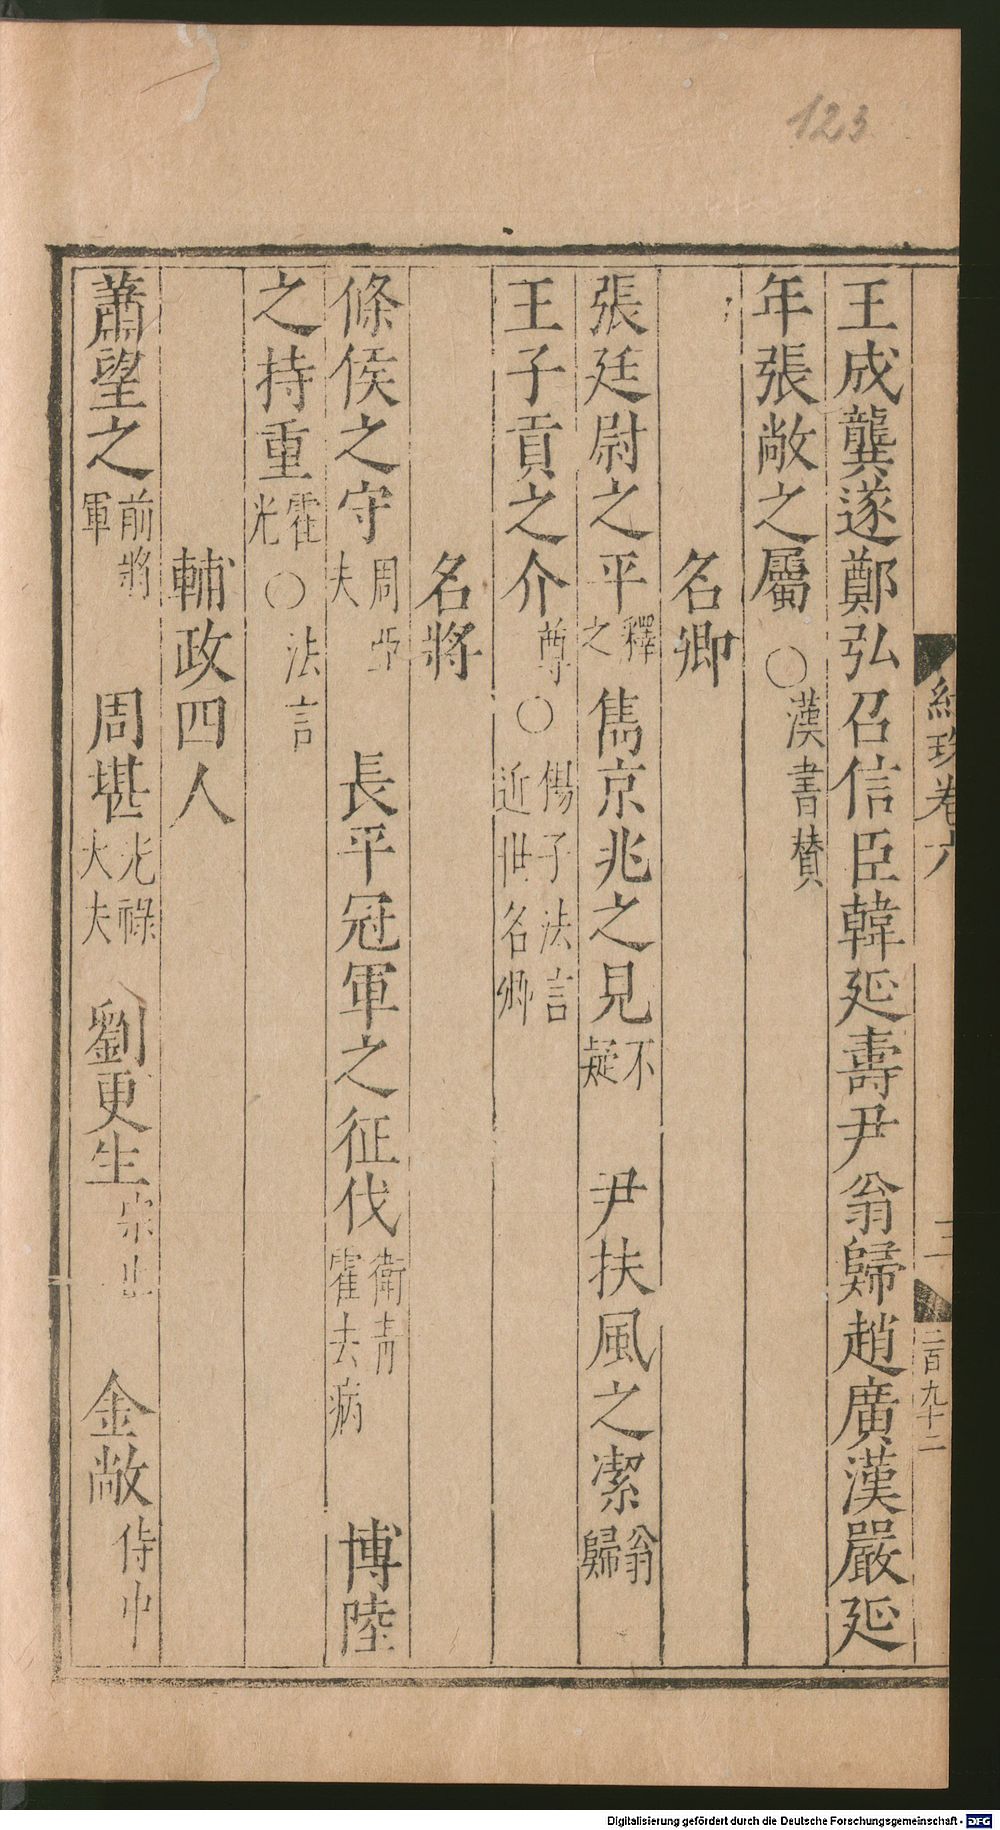 123
紺珠卷六 二 二百九十二
王成龔遂鄭弘召信臣韓延壽尹翁歸趙廣漢嚴延
年張敞之屬○漢書賛
名卿
張廷尉之平釋之 雋京兆之見不疑 尹扶風之潔翁歸
王子貢之介尊○楊子法言近世名卿
名將
條侯之守周亞夫 長平冠軍之征伐衛青霍去病 博陸
之持重霍光○法言
輔政四人
蕭望之前將軍 周堪光祿大夫 劉更生宗正 金敞侍中
Digitalisierung gefördert durch die Deutsche Forschungsgemeinschaft - DFG